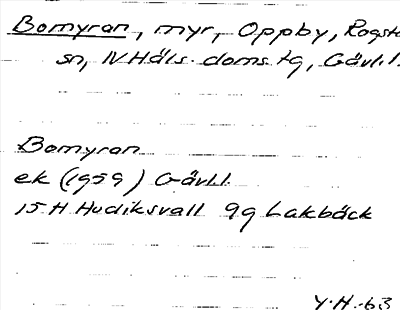 Bomyran, myr, Oppby, Rogsta
sn, N Häls. doms.tg, Gävl.l.
Bomyran
ek (1959) Gävl.l.
15 H Hudiksvall 9g Lakbäck
Y.H.-63